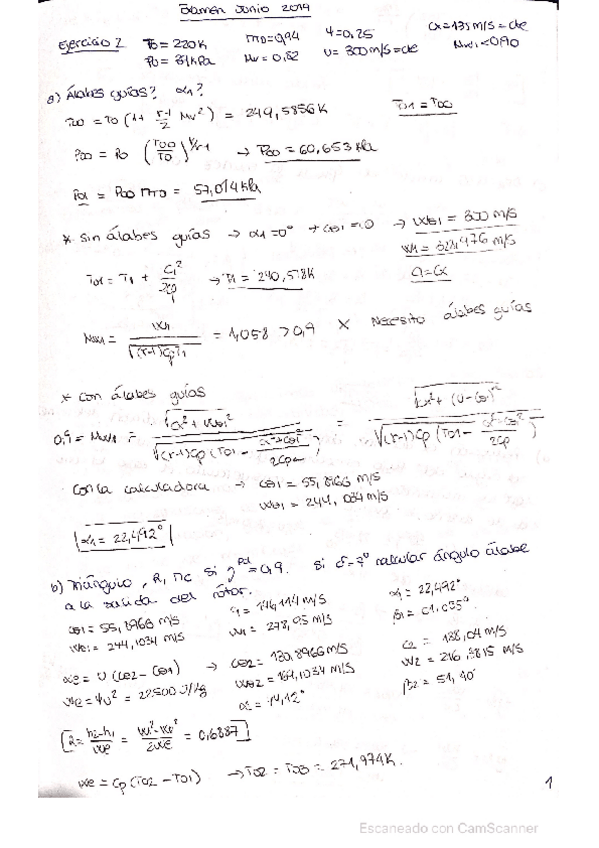 Examen Junio 2014
Ejercicio 2 T0 = 220K π_T0 = 0,94 ψ = 0,25 Cx = 135 m/s = cte
P0 = 31 kPa Mv = 0,82 U = 300 m/s = cte Mw1 < 0,90
a) Álabes guías? α1?
T00 = T0 (1 + (γ-1)/2 Mv²) = 249,5856K T01 = T00
P00 = P0 (T00/T0)^(γ/γ-1) → P00 = 60,653 kPa
P01 = P00 π_T0 = 57,014 kPa
* Sin álabes guías → α1 = 0° → Cθ1 = 0 → Wθ1 = 300 m/s
W1 = 328,976 m/s
T01 = T1 + C1²/2Cp → T1 = 240,518K C1 = Cx
Mw1 = W1/√((γ-1)Cp T1) = 1,058 > 0,9 X Necesito álabes guías
* Con álabes guías
0,9 = Mw1 = √(Cx² + Wθ1²)/√((γ-1)Cp (T01 - (Cx²+Cθ1²)/2Cp)) = √(Cx² + (U-Cθ1)²)/√((γ-1)Cp (T01 - (Cx²+Cθ1²)/2Cp))
Con la calculadora → Cθ1 = 55,8966 m/s
Wθ1 = 244,1034 m/s
α1 = 22,492°
b) Triángulo, R, πc si η^pol = 0,9. Si δ = 7° calcular ángulo álabe
a la salida del rotor.
Cθ1 = 55,8966 m/s C1 = 146,114 m/s α1 = 22,492°
Wθ1 = 244,1034 m/s W1 = 278,95 m/s β1 = 61,055°
We = U (Cθ2 - Cθ1) → Cθ2 = 130,8966 m/s C2 = 188,04 m/s
We = ψU² = 22500 J/kg Wθ2 = 169,1034 m/s W2 = 216,3815 m/s
α2 = 44,12° β2 = 51,40°
R = (h2-h1)/We = (W1²-W2²)/2We = 0,6887
We = Cp (T02 - T01) → T02 = T03 = 271,974K.
1
Escaneado con CamScanner